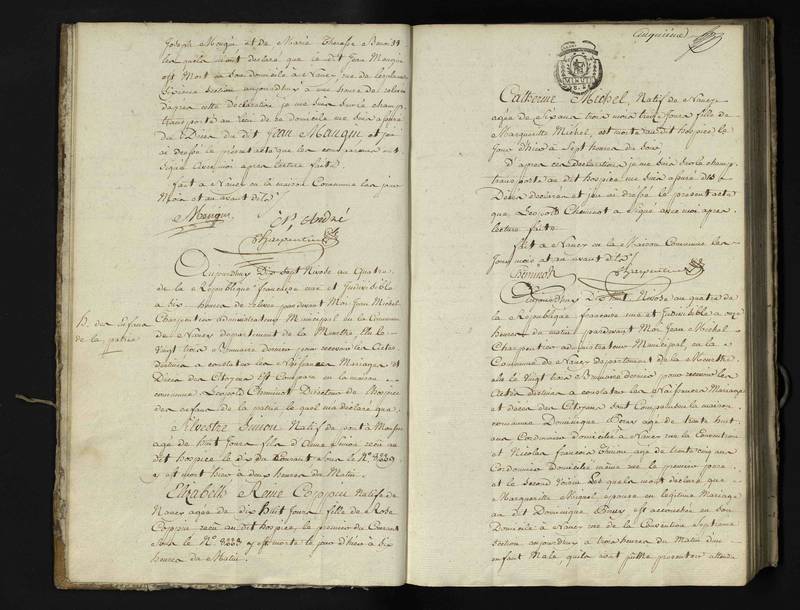 Joseph Mengin et de Marie Therese
les quels mont declaré que le dit Jean Mengin
est Mort en Son domicile à Nancy, rue de
Sixieme Section aujourdhuy à une heure de relevée
dapres cette declaration je me suis sur le champ
transporté au lieu de ce domicile me suis assuré
du Déces du dit Jean Mangin et jai
ai dressé le present acte que les
Signé avec moi apres lecture faite.
fait a Nancy en la maison Commune les jour
Mois et an avant dits
Mengin
André
Charpentier
Aujourdhuy Dix Sept Nivose an Quatre
de la République française une et Indivisible
a dix heures de relevée pardevant Moi Jean Michel
Charpentier administrateur Municipal en la Commune
de Nancy departement de la Meurthe élu le
Vingt trois Brumaire dernier pour recevoir les Actes
destinés a constater les Naissances Mariages et
Déces des Citoyens Est Comparu en la maison
commune Leopold Cheminot Directeur de l'hospice
des enfans de la patrie le quel ma déclaré que
H. des Enfans
de la patrie
Silvestre Simon Natif de pont à Mousson
agé de huit jours fils d'Anne Simon recu au
dit hospice le dix du Courant sous le N°
y est mort hier à deux heures du Matin.
Elizabeth Reine Natif de
Nancy agée de dix huit Jours fille de Rose
recu au dit hospice, le premier du Courant
sous le N° y est morte le jour d'hier à dix
heures du Matin.
Cinquieme
Catherine Michel, Natif de Nancy
agée de Six ans trois mois treize Jours fille de
Marguerite Michel, est morte au dit hospice le
Jour d'hier à Sept heures du Soir,
D'apres ces declarations je me suis sur le champ
transporté au dit hospice me suis assuré des
Déces declarés et jai ai dressé le present acte
que Leopold Cheminot a Signé avec moi apres
lecture faite
fait a Nancy en la Maison Commune les
Jour mois et an avant dits
Cheminot
Charpentier
Aujourdhuy Dix huit Nivose an quatre de
la République francaise une et indivisible à onze
heures du matin pardevant Moi Jean Michel
Charpentier administrateur Municipal, en la
Commune de Nancy departement de la Meurthe
élu le Vingt trois Brumaire dernier pour recevoir les
Actes destinés a constater les Naissances Mariages
et déces des Citoyens Sont Comparus en la maison
commune Dominique agé de trente huit
ans Cordonnier domicilié a Nancy rue la Convention
et Nicolas francois agé de trente cinq ans
Cordonnier Domicilié même rue le premier pere
et le second Voisin Les quels mont declaré que
Marguerite Miguel epouse en legitime Mariage
au dit Dominique est accouchée en son
Domicile à Nancy rue de la Convention Septieme
Section aujourdhuy à trois heures du Matin d'un
enfant Male, quils nont pu me presenter attendu